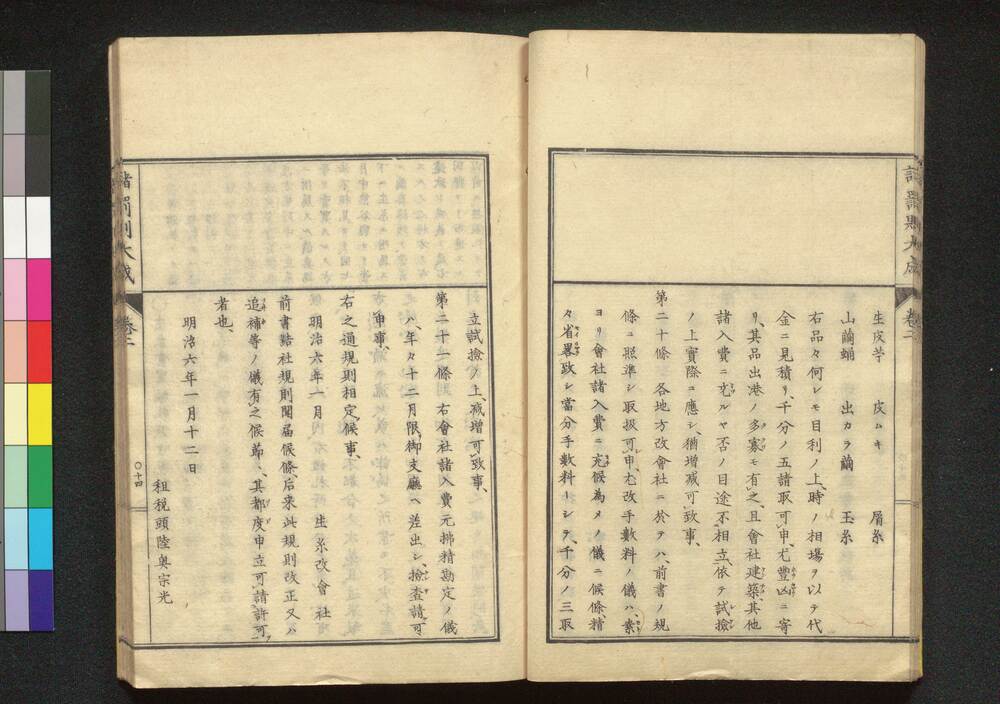 諸罰則大成　卷二
生皮苧　皮ムキ　屑糸
山繭蛹　出カラ繭　玉糸
右品々何レモ目利ノ上、時ノ相場ヲ以テ代
金ニ見積リ、千分ノ五諸取可申、尤豊凶ニ寄
リ、其品出港ノ多寡モ有之、且會社建築、其他
諸入費ニ充ルヤ否ノ目途不相立、依テ試撿
ノ上實際ニ應シ、猶增减可致事、
第二十條　各地方改會社ニ於テハ、前書ノ規
條ニ照準シ取扱可申、尤改手數料ノ儀ハ、素
ヨリ會社諸入費ニ充候為メノ儀ニ候條、精
々省畧致シ、當分手數料トシテ、千分ノ三取
立試撿ノ上、减增可致事、
第二十一條　右會社諸入費元拂精勘定ノ儀
ハ、年々十二月限、御支廳ヘ差出シ、撿査請可
申事、
右之通規則相定候事、
明治六年一月　生糸改會社
前書諸社規則聞届候條、后来此規則改正又ハ
追補等ノ儀有之候節ハ、其都度申立可請許可
者也、
明治六年一月十二日
租税頭陸奥宗光
諸罰則大成　卷二　〇十四